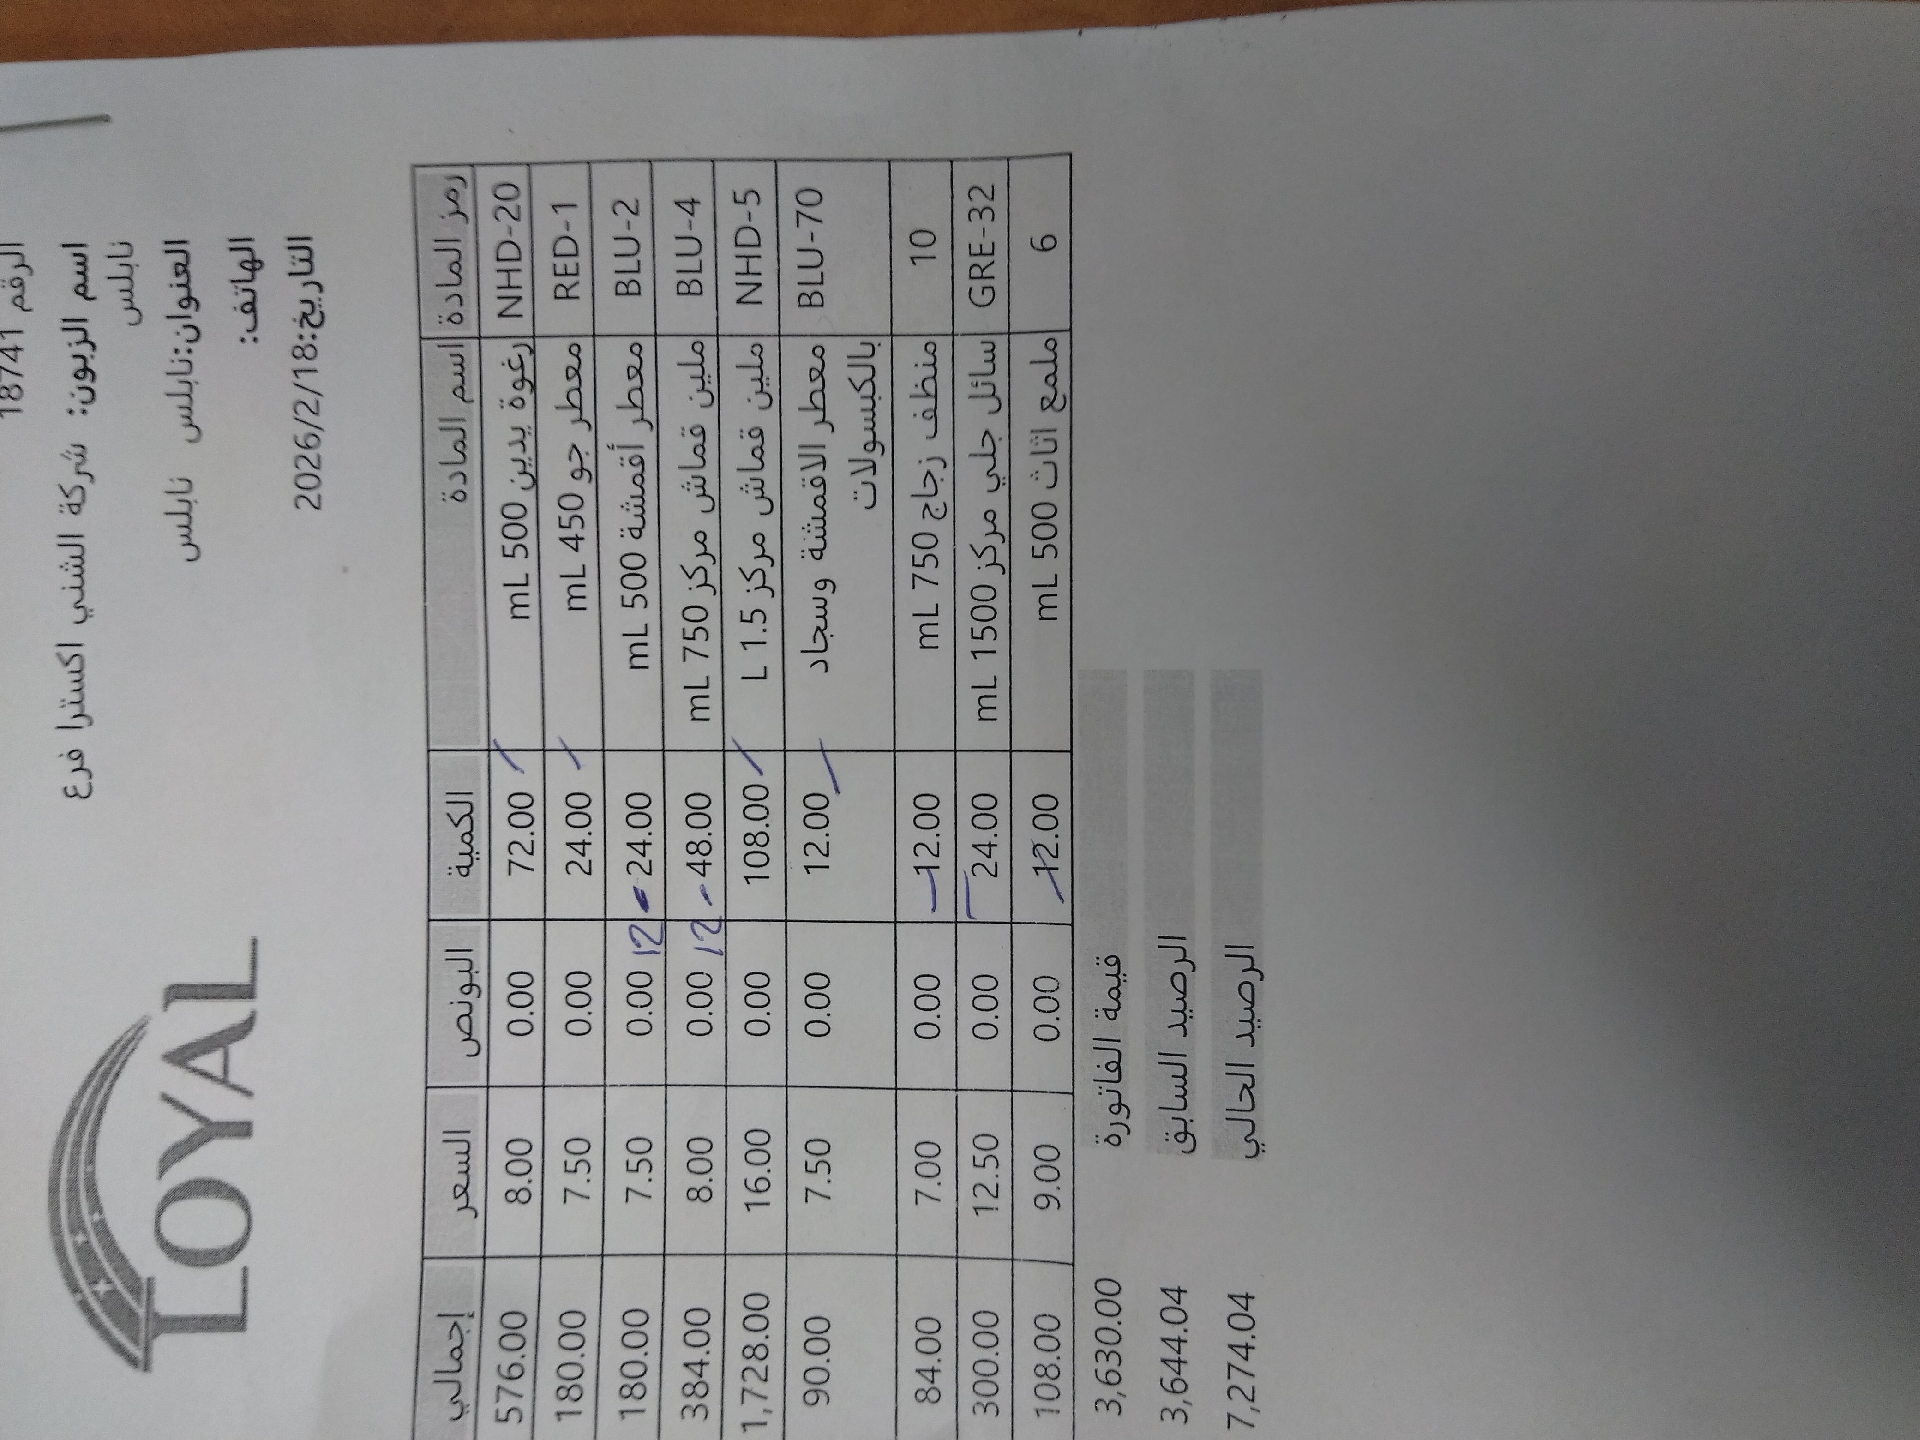 LOYAL
الرقم 18741
اسم الزبون: شركة الشني اكسترا فرع
نابلس
العنوان:نابلس نابلس
الهاتف:
التاريخ:2026/2/18
رمز المادة اسم المادة الكمية البونص السعر إجمالي
NHD-20 رغوة يدين 500 mL 72.00 0.00 8.00 576.00
RED-1 معطر جو 450 mL 24.00 0.00 7.50 180.00
BLU-2 معطر أقمشة 500 mL 24.00 12 0.00 7.50 180.00
BLU-4 ملين قماش مركز 750 mL 48.00 12 0.00 8.00 384.00
NHD-5 ملين قماش مركز 1.5 L 108.00 0.00 16.00 1,728.00
BLU-70 معطر الاقمشة وسجاد 12.00 0.00 7.50 90.00
بالكبسولات
10 منظف زجاج 750 mL 12.00 0.00 7.00 84.00
GRE-32 سائل جلي مركز 1500 mL 24.00 0.00 12.50 300.00
6 ملمع اثاث 500 mL 12.00 0.00 9.00 108.00
قيمة الفاتورة 3,630.00
الرصيد السابق 3,644.04
الرصيد الحالي 7,274.04